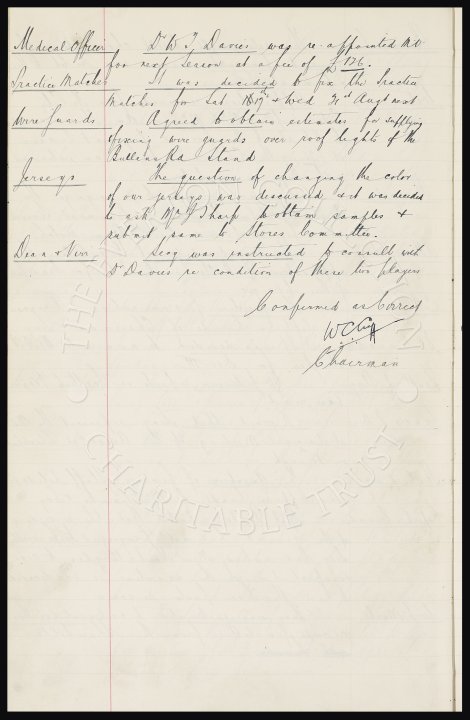 Medical Officer Dr W. J. Davies was re-appointed M.O.
for next Season at a fee of £126.
Practice Matches It was decided to fix the Practice
Matches for Sat 17th & Wed 21st Augt next
Wire Guards Agreed to obtain estimates for supplying
& fixing wire guards over roof lights of the
Bullens Rd Stand
Jerseys The question of changing the color
of our jerseys was discussed & it was decided
to ask Mr Sharp to obtain samples &
submit same to Stores Committee.
Dean & Secy was instructed to consult with
Dr Davies re condition of these two players
Confirmed as Correct
W C Cuff
Chairman
THE
CHARITABLE TRUST